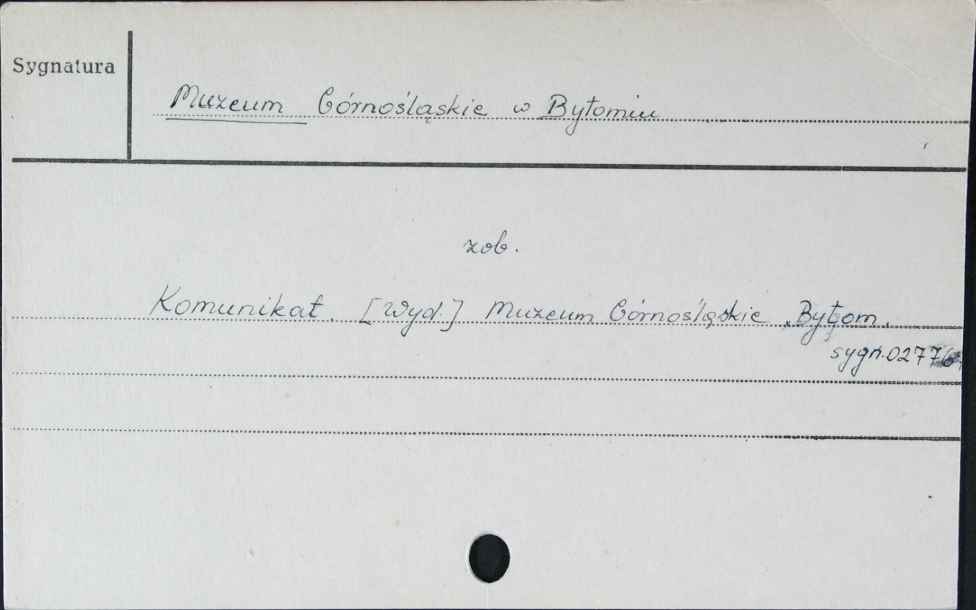 Sygnatura
Muzeum Górnośląskie w Bytomiu
zob.
Komunikat. [Wyd.] Muzeum Górnośląskie, Bytom.
sygn. 0277